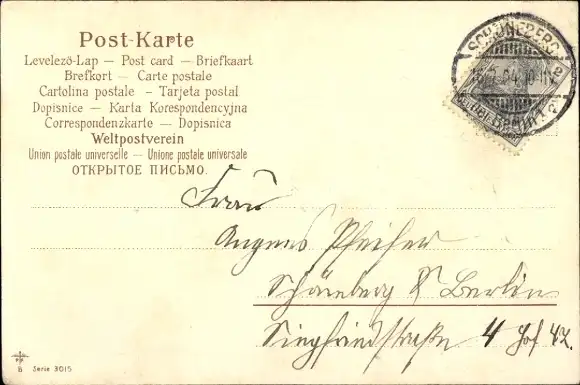 Post-Karte
Levelező-Lap — Post card — Briefkaart
Brefkort — Carte postale
Cartolina postale – Tarjeta postal
Dopisnice — Karta Korespondencyjna
Correspondenzkarte — Dopisnica
Weltpostverein
Union postale universelle — Unione postale universale
ОТКРЫТОЕ ПИСЬМО.
SCHÖNEBERG
Frau
Pfeifer
Schöneberg b Berlin
Siegfriedstraße 4 Hof 4Z.
B Serie 3015